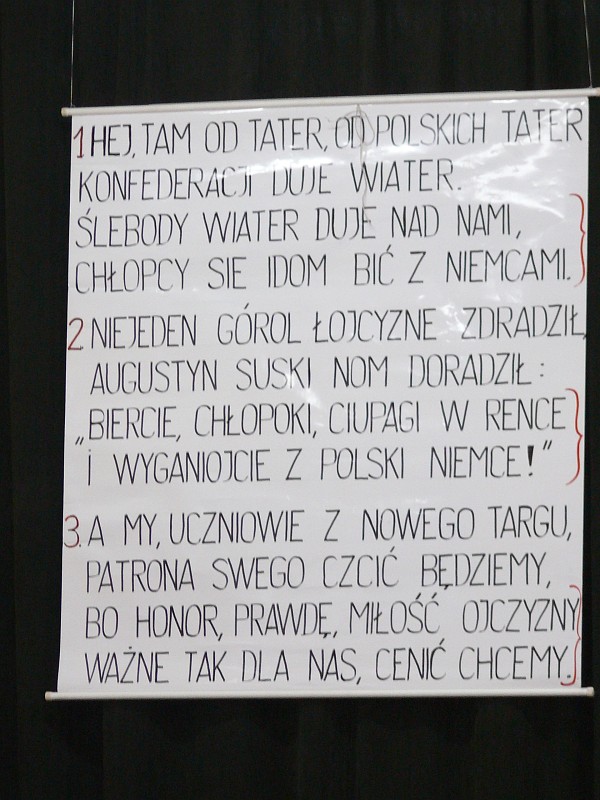 1 HEJ, TAM OD TATER, OD POLSKICH TATER
KONFEDERACJI DUJE WIATER.
ŚLEBODY WIATER DUJE NAD NAMI,
CHŁOPCY SIE IDOM BIĆ Z NIEMCAMI.
2. NIEJEDEN GÓROL ŁOJCYZNE ZDRADZIŁ,
AUGUSTYN SUSKI NOM DORADZIŁ:
„BIERCIE, CHŁOPOKI, CIUPAGI W RENCE
I WYGANIOJCIE Z POLSKI NIEMCE!"
3. A MY, UCZNIOWIE Z NOWEGO TARGU,
PATRONA SWEGO CZCIĆ BĘDZIEMY,
BO HONOR, PRAWDĘ, MIŁOŚĆ OJCZYZNY
WAŻNE TAK DLA NAS, CENIĆ CHCEMY.